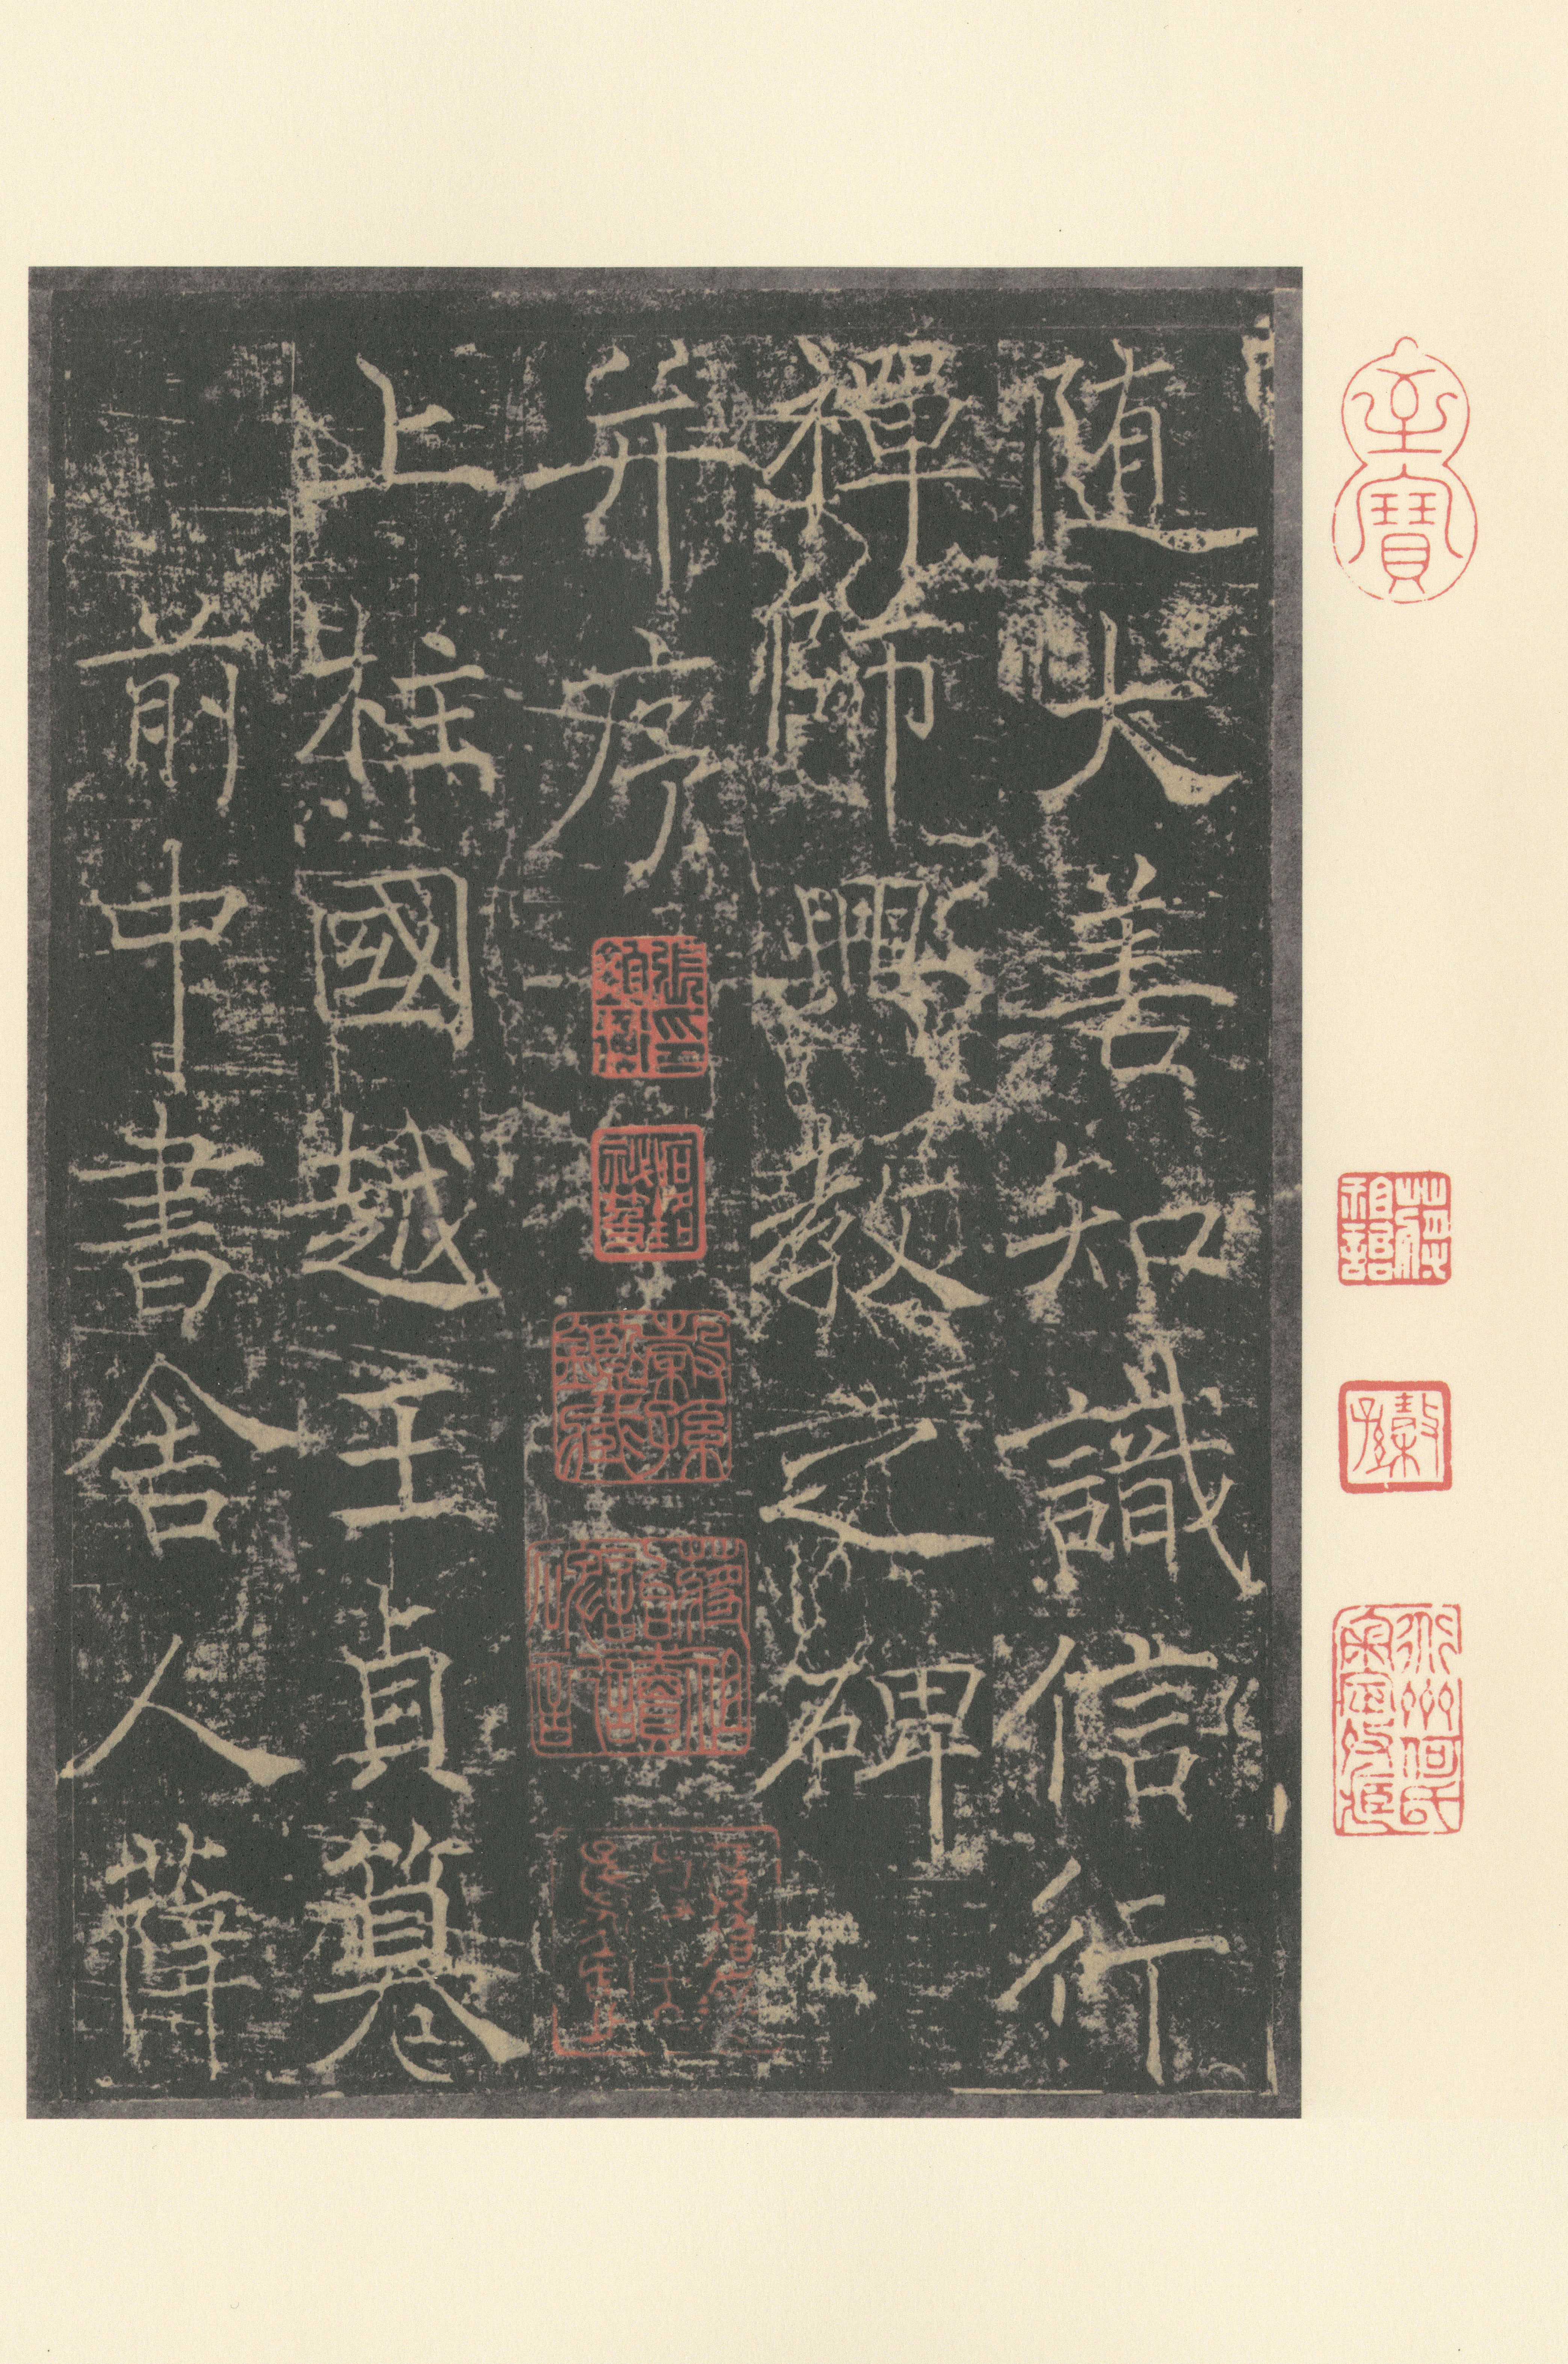 随大善知識信行
禪師興教之碑
并序
上柱國越王貞篡
前中書舍人薛
至寶